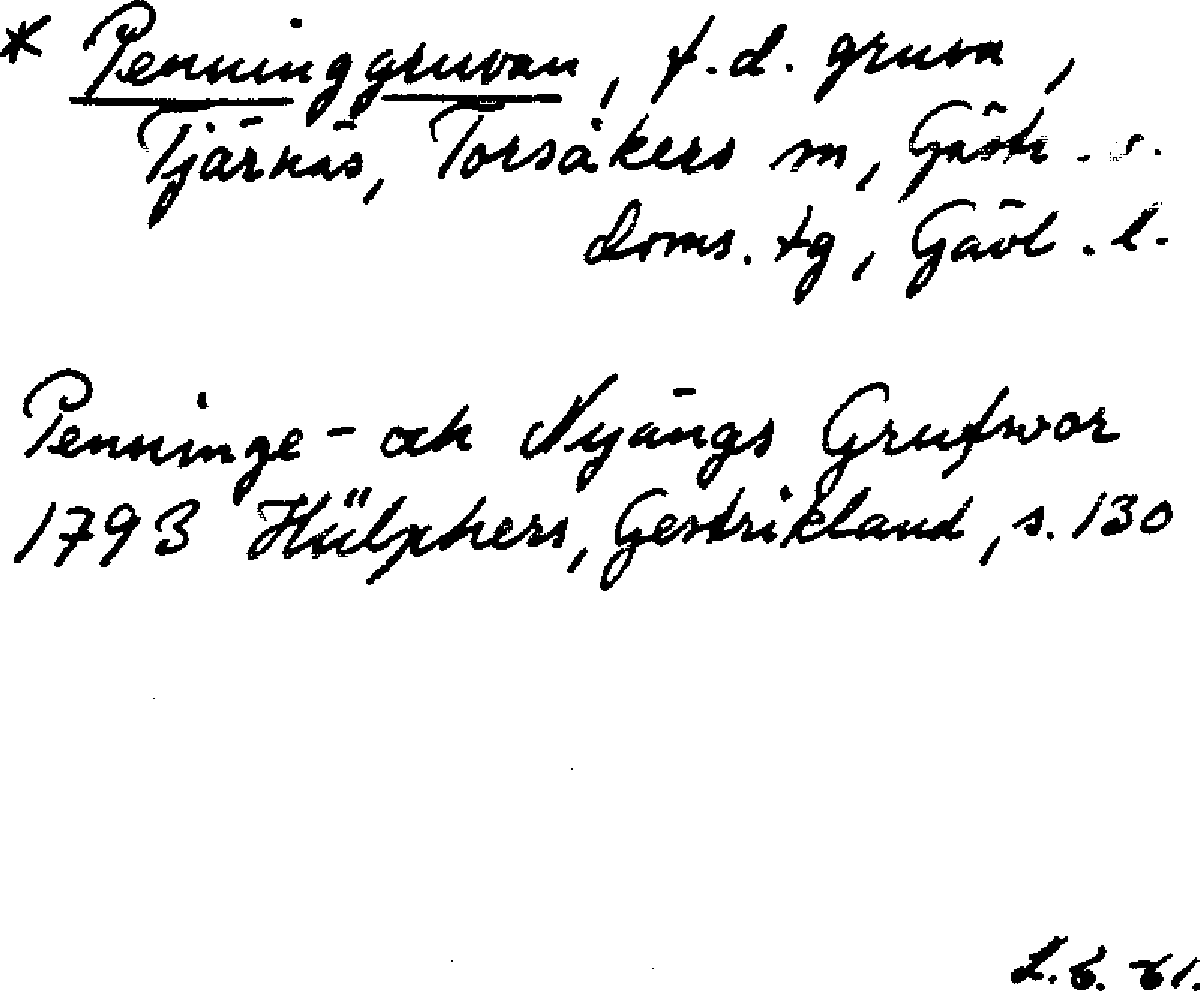 * Penninggruvan, f.d. gruva,
Tjärnäs, Torsåkers sn, Gästr. v.
doms. tg, Gävl. l.
Penninge- och Nyängs Grufwor
1793 Hülphers, Gestrikland, s. 130